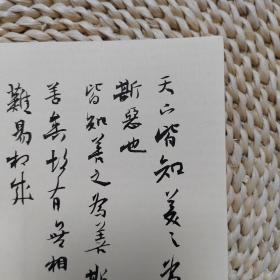 天下皆知美之為
斯惡也
皆知善之為善斯
善矣故有無相
難易相成